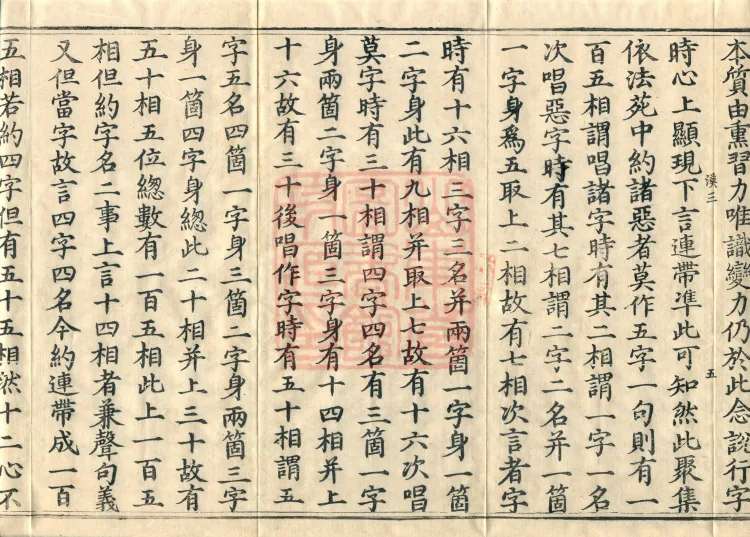 本質由熏習力唯識變力仍於此念說行字
三 五
時心上顯現下言連帶準此可知然此聚集
依法苑中約諸惡者莫作五字一句則有一
百五相謂唱諸字時有其二相謂一字一名
次唱惡字時有其七相謂二字二名并一箇
一字身爲五取上二相故有七相次言者字
時有十六相三字三名并兩箇一字身一箇
二字身此有九相并取上七故有十六次唱
莫字時有三十相謂四字四名有三箇一字
身兩箇二字身一箇三字身有十四相并上
十六故有三十後唱作字時有五十相謂五
字五名四箇一字身三箇二字身兩箇三字
身一箇四字身總此二十相并上三十故有
五十相五位總數有一百五相此上一百五
相但約字名二事上言十四相者兼聲句義
又但當字故言四字四名今約連帶成一百
五相若約四字但有五十五相然十二心不